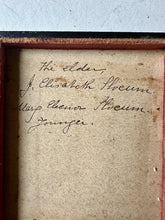 The elder,
J. Elisabeth Slocum
Mary Eleanor Slocum.
Younger.